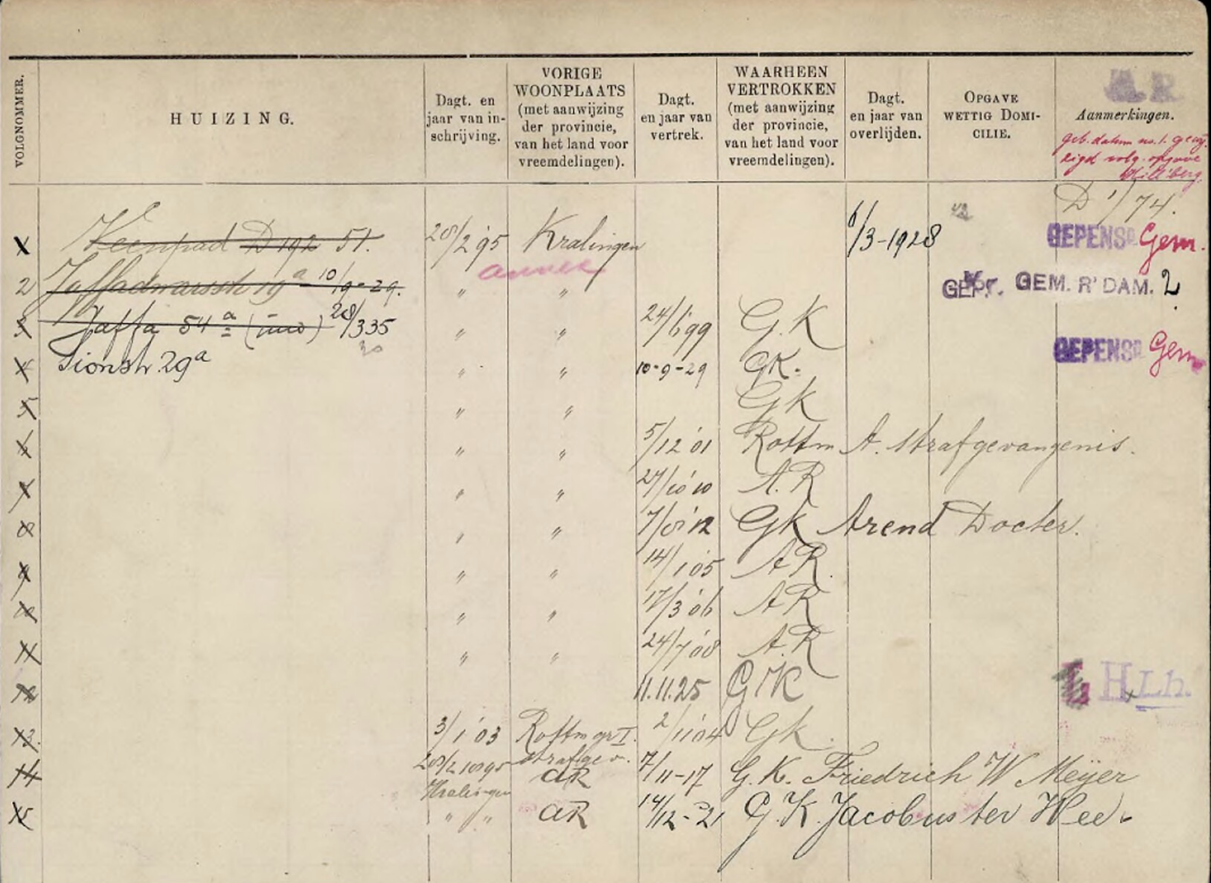 VOLGNOMMER.
HUIZING.
Dagt. en
jaar van in-
schrijving.
VORIGE
WOONPLAATS
(met aanwijzing
der provincie,
van het land voor
vreemdelingen).
Dagt.
en jaar van
vertrek.
WAARHEEN
VERTROKKEN
(met aanwijzing
der provincie,
van het land voor
vreemdelingen).
Dagt.
en jaar van
overlijden.
OPGAVE
WETTIG DOMI-
CILIE.
A.R.
Aanmerkingen.
geb. datum no. 1
volg. opgave
D 1/74.
Veenpad D 192 51. 28/2 '95 Kralingen 6/3-1928 GEPENS. Gem.
annex
2 Jaffadwarsstr 19 a 10/9-29. " " GEM. R'DAM. 2
3 Jaffa 54 a 28/3 35 " " 24/1 '99 G.K
4 Sionstr. 29a " " 10-9-29 GK. GEPENS. Gem
5 " " GK
" " 5/12 '01 Rottm A. Strafgevangenis.
" " 27/10 '10 A.R
8 " " 7/8 '12 GK Arend Docter.
9 " " 14/1 '05 AR.
10 " " 17/3 '06 AR
11 " " 24/7 '08 A.R
12 11.11.25 GK L H Lh.
13. 3/1 '03 Rottm gr I. 2/1 '04 GK.
strafgev.
14 28/2 1895 AR 7/11-17 G.K. Friedrich W Meijer
Kralingen
15 " " AR 14/12-21 G.K. Jacobus ter Wee.